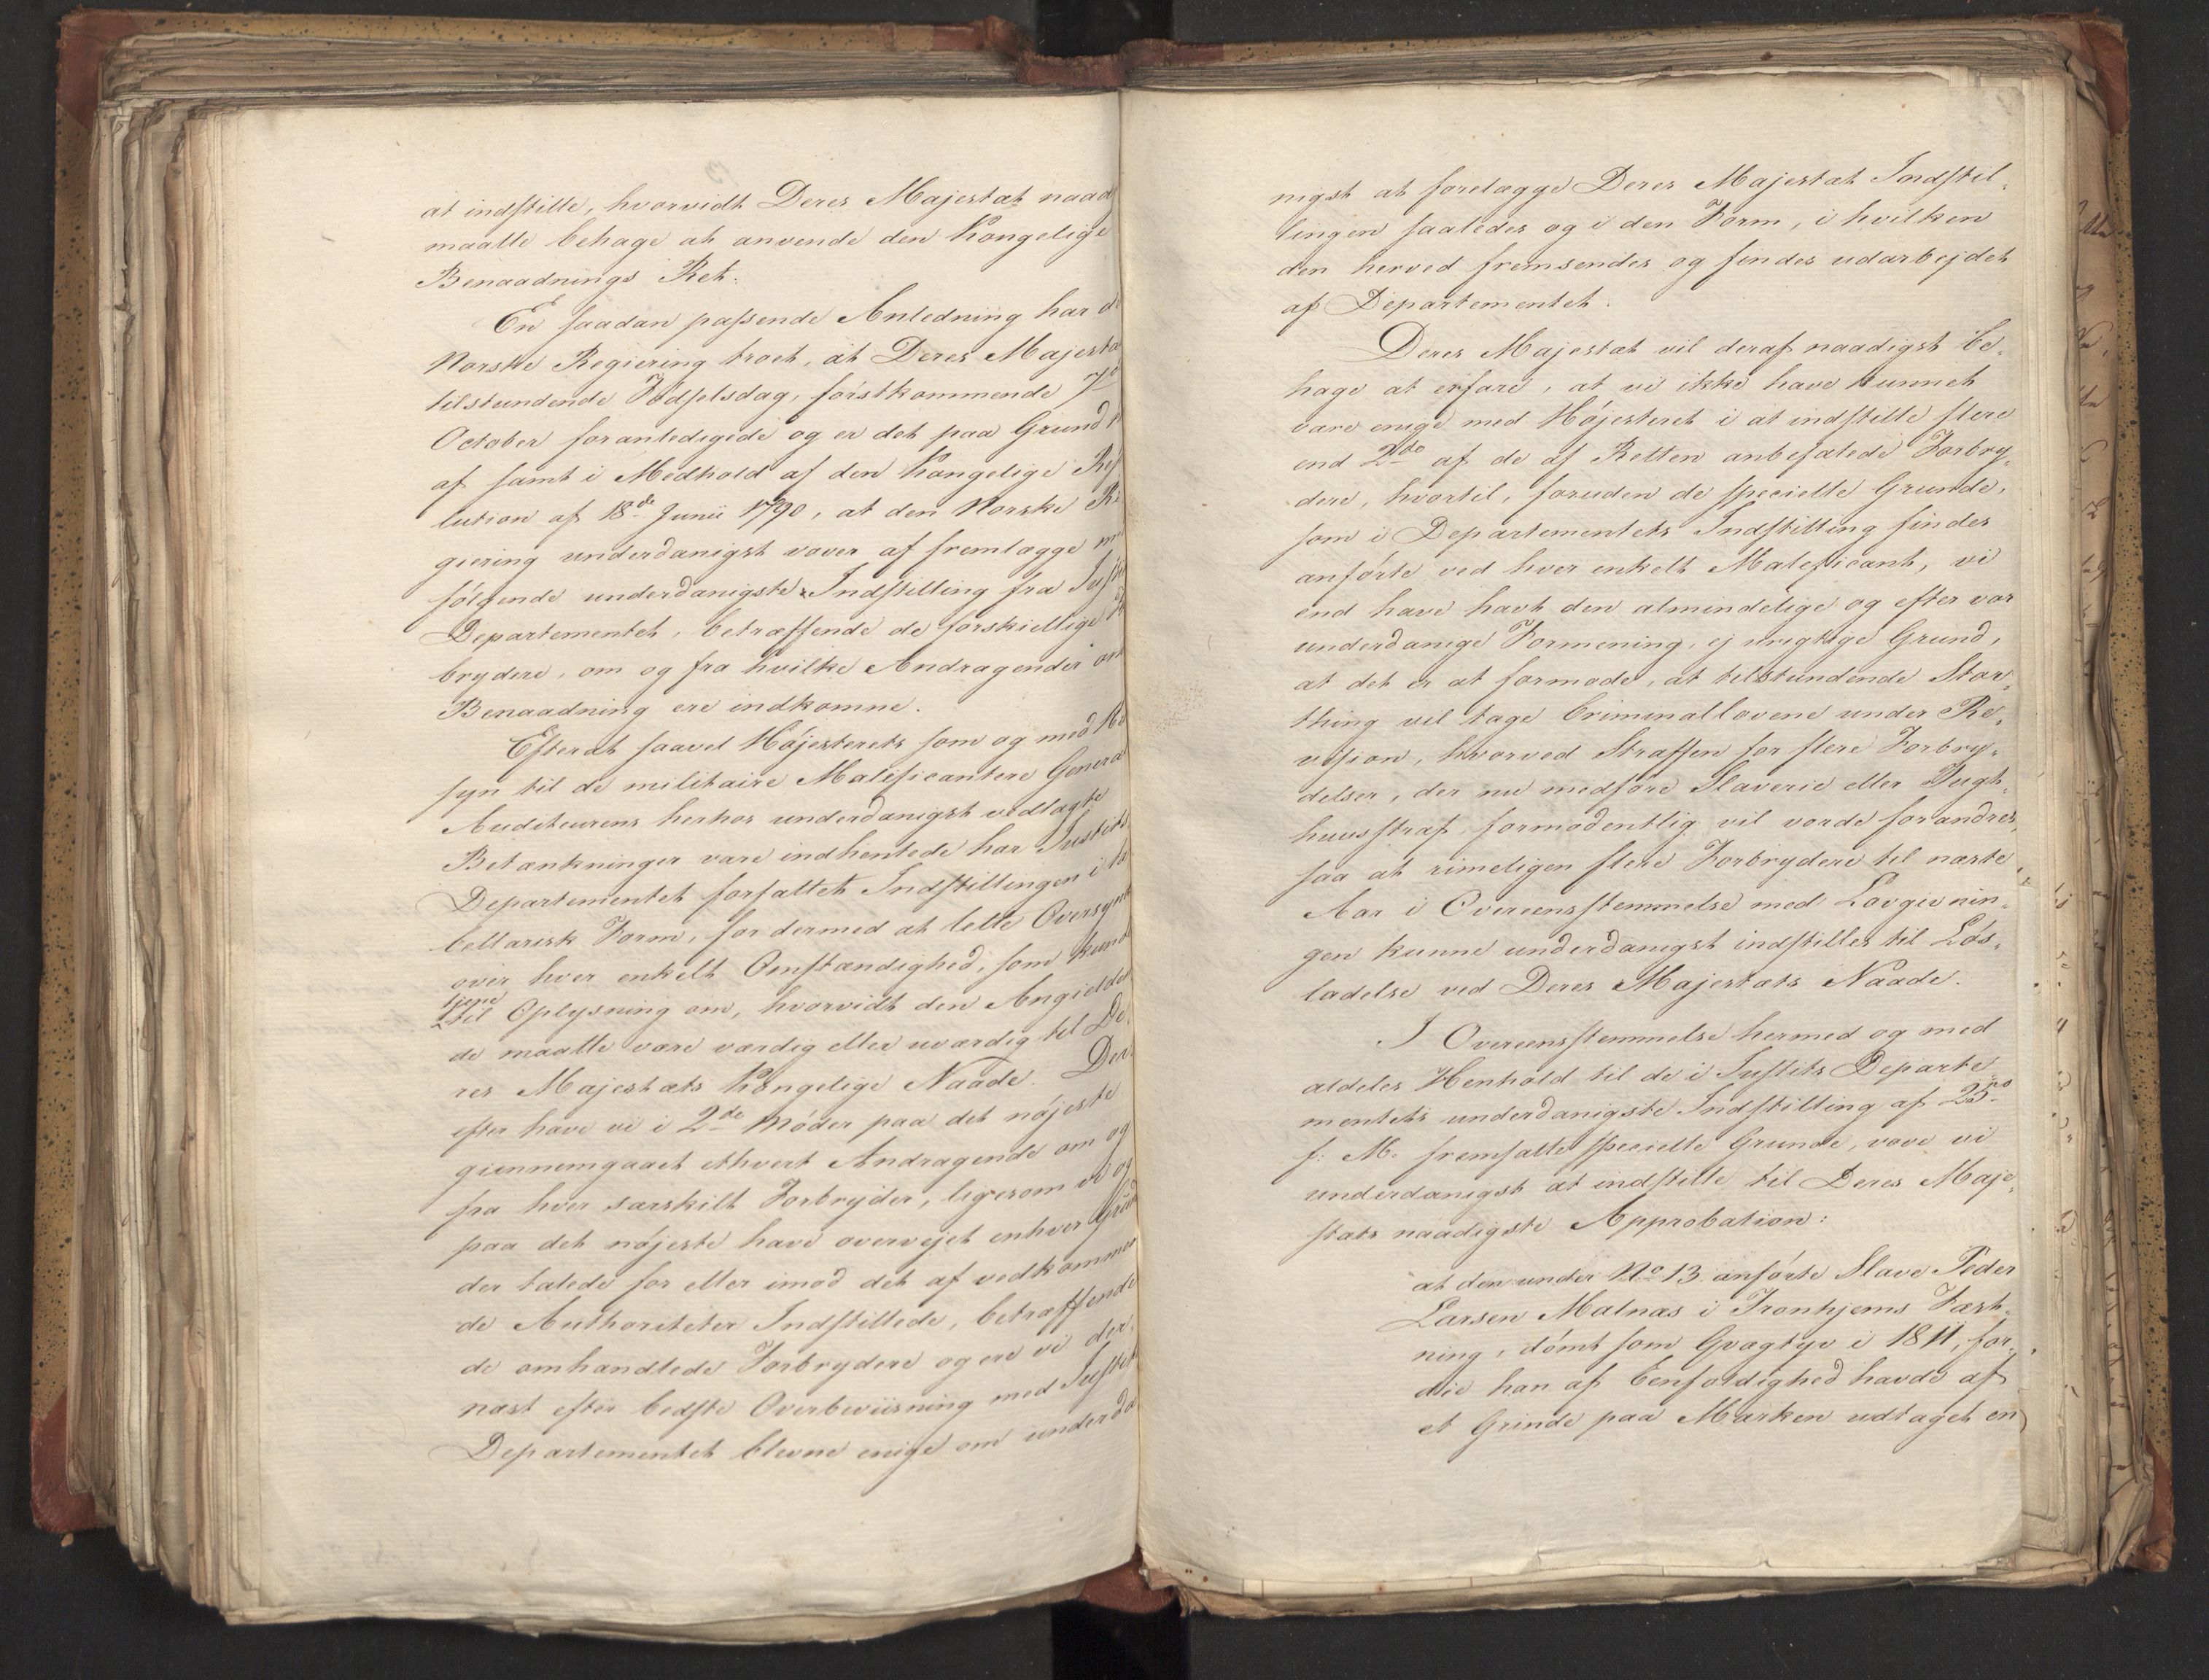 at indstille, hvorvidt Deres Majestæt naad
maatte behage at anvende den Kongelige
Benaadnings Ret.
En saadan passende Anledning har d
Norske Regiering troet, at Deres Majestæ
tilstundende Fødselsdag, førstkommende 7de
October foranledigede og er det paa Grund
af samt i Medhold af den Kongelige Res
lution af 18de Junii 1790, at den Norske Re
giering underdanigst vover af fremlægge
følgende underdanigste Indstilling fra Just
Departementet, betræffende de forskiellige
brydere, om og fra hvilke Andragender om
Benaadning ere indkomne.
Efterat saavel Højesterets som og med He
syn til de militaire Maleficantere General
Auditeurens herhos underdanigst vedlagte
Betænkninger vare indhentede har Justits
Departementet forfattet Indstillingen i ta
bellarisk Form, for dermed at lette Oversynet
over hver enkelt Omstændighed, som kund
tjene
til Oplysning om, hvorvidt den Angielden
de maatte være værdig eller uværdig til De
res Majestæts Kongelige Naade. Der
efter have vi i 2de Møder paa det nøjeste
giennemgaaet ethvert Andragende om og
fra hver særskilt Forbryder, ligesom vi og
paa det nøjeste have overvejet enhver Grund
der talede for eller imod det af vedkommen
de Authoriteter Indstillede, betræffende
de omhandlede Forbrydere og ere vi der
næst efter bedste Overbeviisning med Justits
Departementet blevne enige om underda
nigst at forelægge Deres Majestæt Indstil,
lingen saaledes og i den Form, i hvilken
den herved fremsendes og findes udarbejdet
af Departementet.
Deres Majestæt vil deraf naadigst be,
hage at erfare, at vi ikke have kunnet
være enige med Højesteret i at indstille flere
end 2de af de af Retten anbefalede Forbry,
dere, hvortil, foruden de specielle Grunde,
som i Departementets Indstilling findes
anførte ved hver enkelt Maleficant, vi
end have havt den almindelige og efter vor
underdanige Formening, ej urigtige Grund,
at det er at formode, at tilstundende Stor,
thing vil tage Criminallovene under Re,
vision, hvorved Straffen for flere Forbry,
delser, der nu medføre Slaverie eller Tugt,
huusstraf, formodentlig vil vorde forandret,
saa at rimeligen flere Forbrydere til næste
Aar i Overeensstemmelse med Lovgivnin,
gen kunne underdanigst indstilles til Løs,
ladelse ved Deres Majestæts Naade.
I Overeensstemmelse hermed og med
aldeles Henhold til de i Justits Departe
mentets underdanigste Indstilling af 25de
f: M: fremsatte specielle Grunde, vove vi
underdanigst at indstille til Deres Maje,
stæts naadigste Approbation:
at den under No 13 anførte Slave Peder
Larsen Malnæs i Tronhjems Fæst,
ning, dømt som Qvægtyv i 1811, for,
die han af Eenfoldighed havde af
et Grinde paa Marken udtaget en